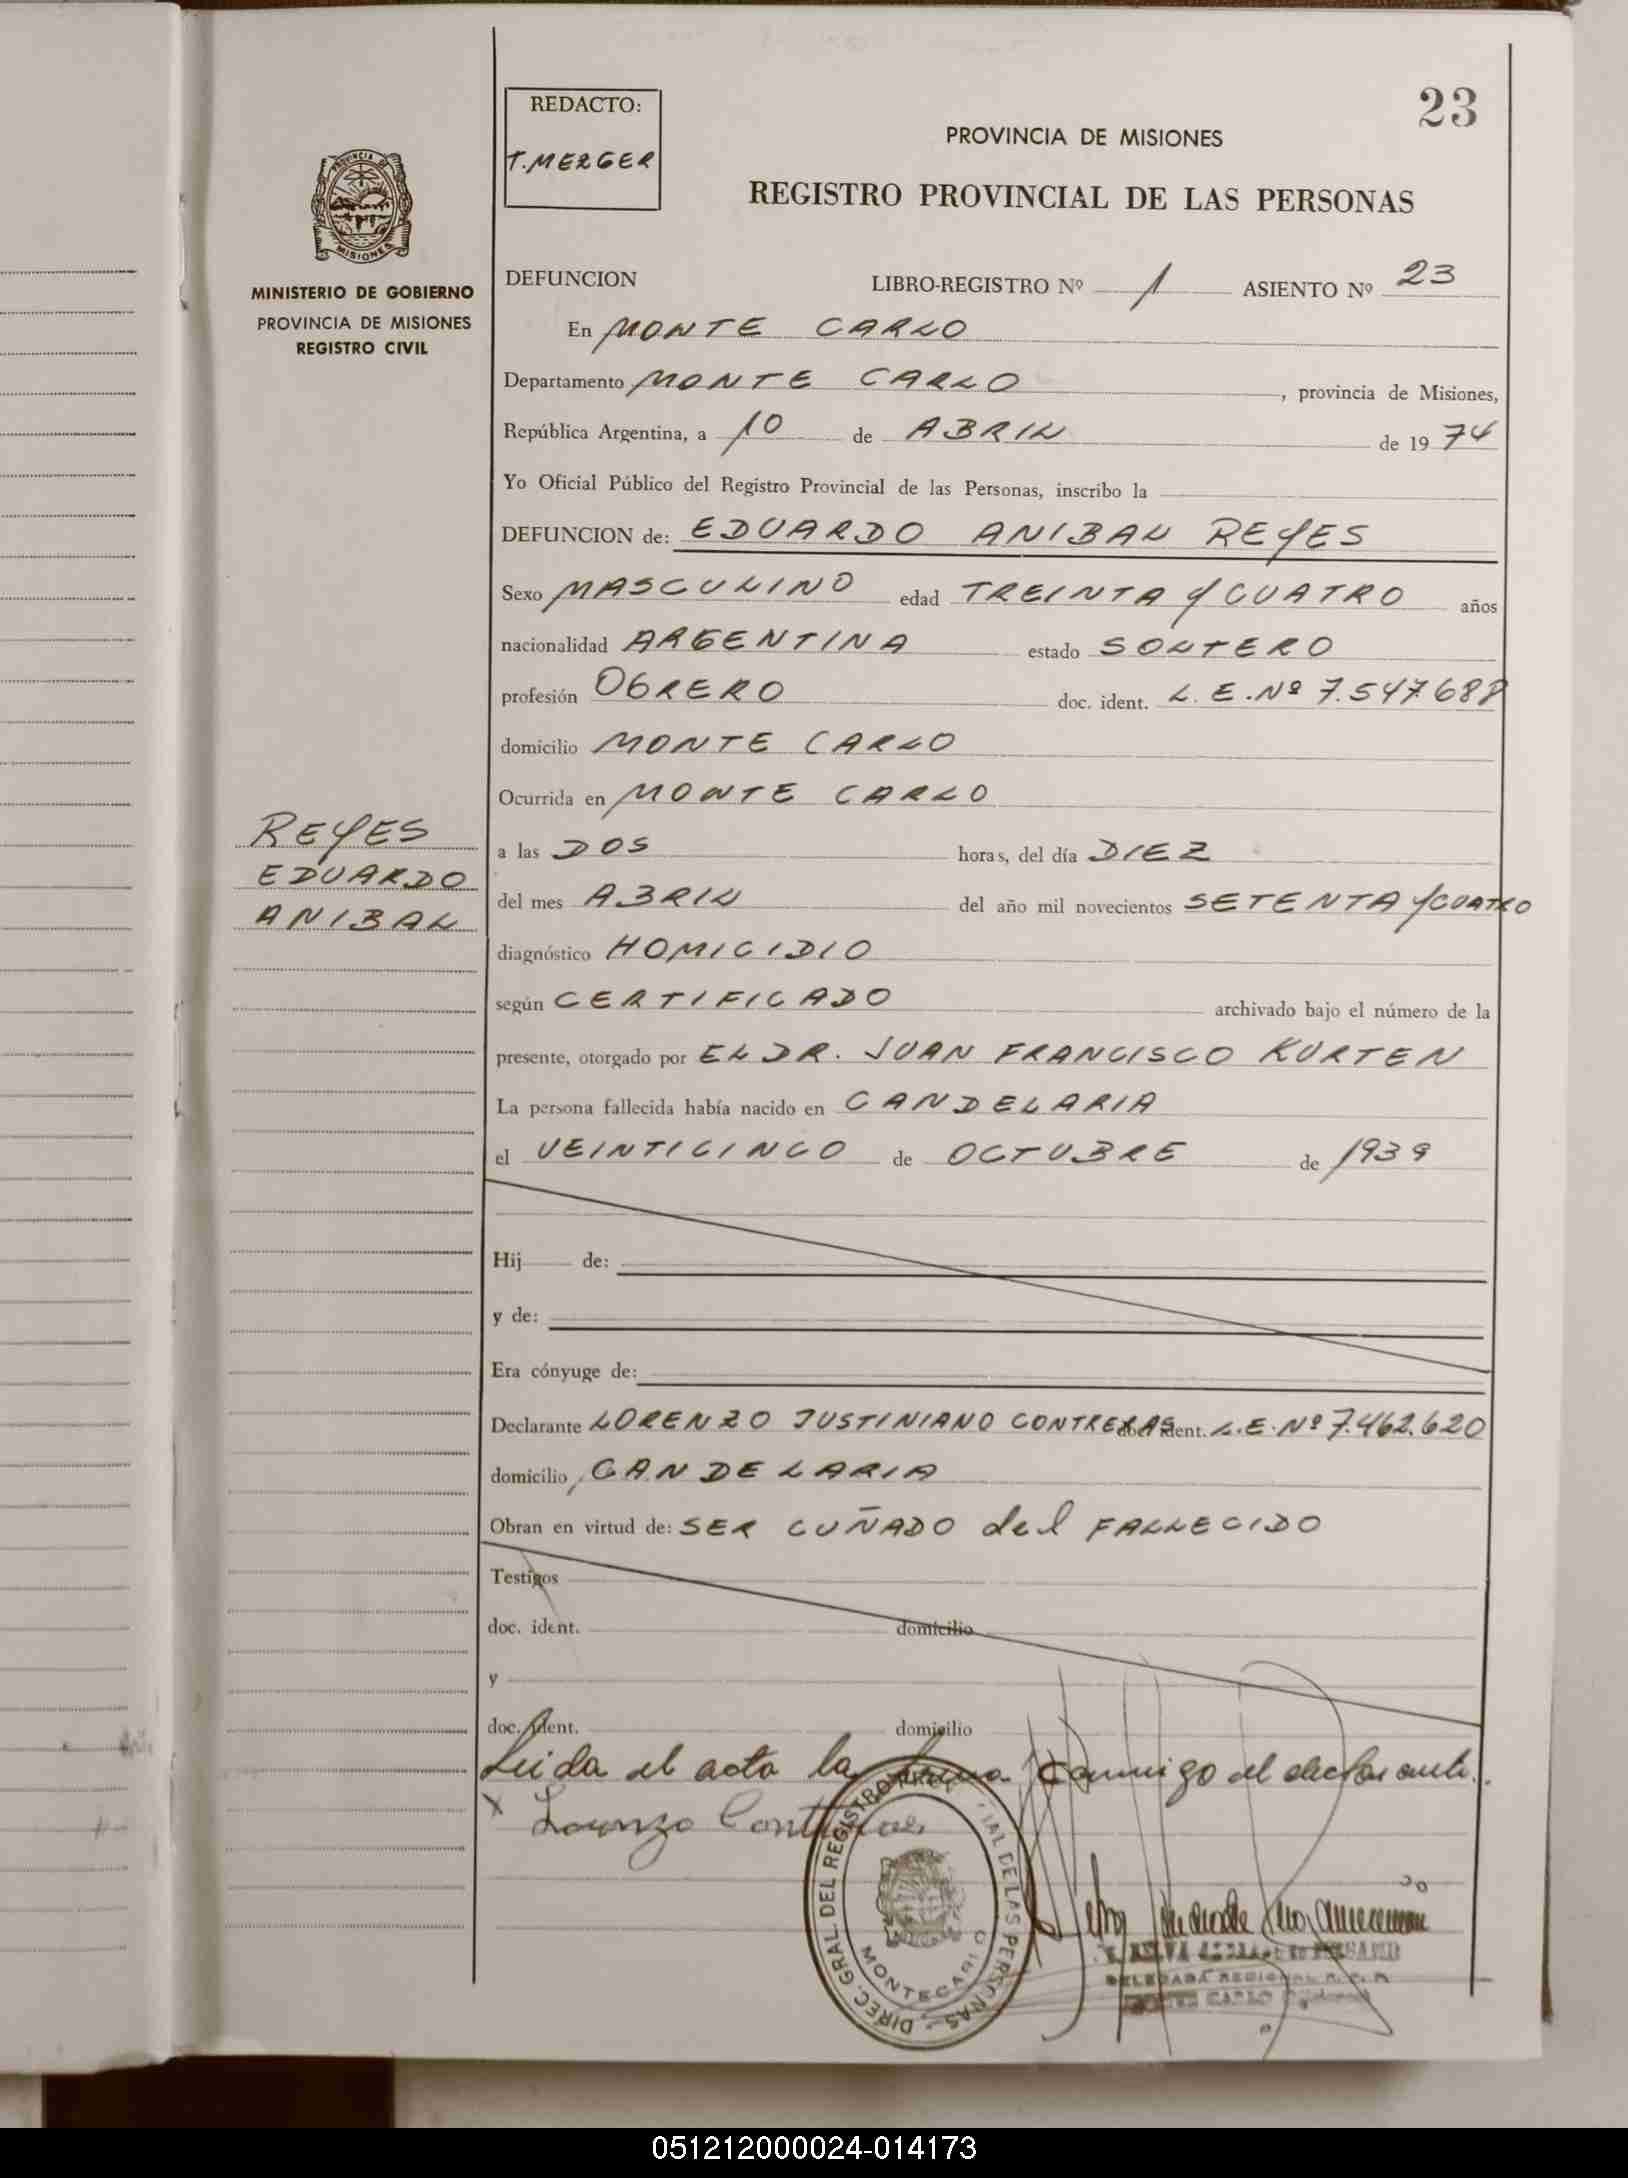 23
REDACTO:
T. MERGER
PROVINCIA DE MISIONES
REGISTRO PROVINCIAL DE LAS PERSONAS
PROVINCIA DE
MISIONES
MINISTERIO DE GOBIERNO
PROVINCIA DE MISIONES
REGISTRO CIVIL
DEFUNCION LIBRO-REGISTRO Nº 1 ASIENTO Nº 23
En MONTE CARLO
Departamento MONTE CARLO, provincia de Misiones,
República Argentina, a 10 de ABRIL de 1974
Yo Oficial Público del Registro Provincial de las Personas, inscribo la
DEFUNCION de: EDUARDO ANIBAL REYES
Sexo MASCULINO edad TREINTA Y CUATRO años
nacionalidad ARGENTINA estado SOLTERO
profesión OBRERO doc. ident. L.E.Nº 7.547.688
domicilio MONTE CARLO
Ocurrida en MONTE CARLO
REYES
EDUARDO
ANIBAL
a las DOS horas, del día DIEZ
del mes ABRIL del año mil novecientos SETENTA Y CUATRO
diagnóstico HOMICIDIO
según CERTIFICADO archivado bajo el número de la
presente, otorgado por EL DR. JUAN FRANCISCO KURTEN
La persona fallecida había nacido en CANDELARIA
el VEINTICINCO de OCTUBRE de 1939
Hij de:
y de:
Era cónyuge de:
Declarante LORENZO JUSTINIANO CONTRERAS doc. ident. L.E.Nº 7.462.620
domicilio CANDELARIA
Obran en virtud de: SER CUÑADO del FALLECIDO
Testigos
doc. ident. domicilio
y
doc. ident. domicilio
Leida el acta la firma conmigo el declarante.
x Lorenzo Contreras
DIREC. GRAL DEL REGISTRO PROVINCIAL DE LAS PERSONAS
MONTECARLO
DELEGADA REGIONAL R.P.P.
MONTE CARLO
051212000024-014173